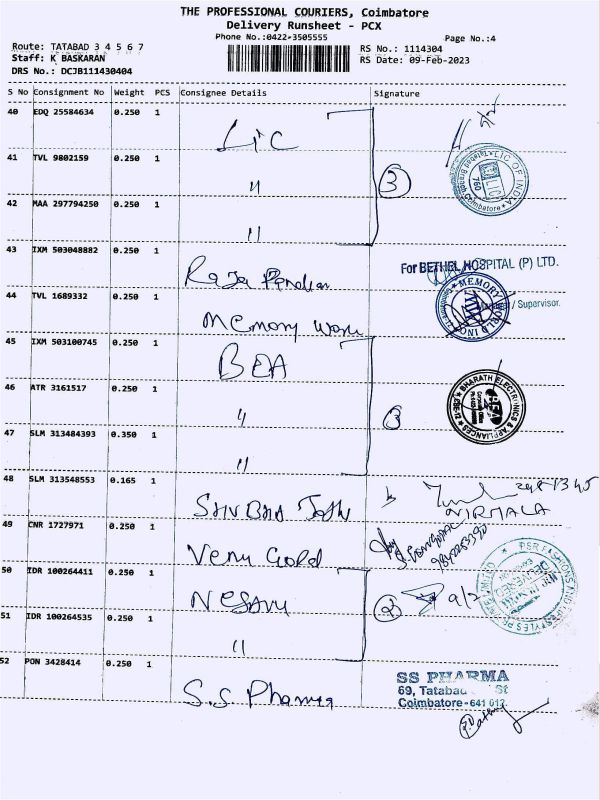 THE PROFESSIONAL COURIERS, Coimbatore
Delivery Runsheet - PCX
Phone No.:0422-3505555 Page No.:4
Route: TATABAD 3 4 5 6 7 RS No.: 1114304
Staff: K BASKARAN RS Date: 09-Feb-2023
DRS No.: DCJB111430404
S No Consignment No Weight PCS Consignee Details Signature
40 EDQ 25584634 0.250 1
LIC
41 TVL 9802159 0.250 1
" 3
LIC OF INDIA
Tatabad Branch
LIC
760
Coimbatore
42 MAA 297794250 0.250 1
"
43 IXM 503048882 0.250 1
Raja Pandian
For BETHEL HOSPITAL (P) LTD.
44 TVL 1689332 0.250 1
Manager / Supervisor.
MEMORY WORLD IN
Memory World
45 IXM 503100745 0.250 1
BEA
46 ATR 3161517 0.250 1
" 3
BHARATH ELECTRONICS & APPLIANCES
BEA
CBE-12
47 SLM 313484393 0.350 1
"
48 SLM 313548553 0.165 1
NIRMALA
49 CNR 1727971 0.250 1
Venu Gold
50 IDR 100264411 0.250 1
Nesavu 2 9/2
PSR FASHIONS N LIFESTYLES
51 IDR 100264535 0.250 1
"
52 PON 3428414 0.250 1
S.S Pharma
SS PHARMA
69, Tatabad St
Coimbatore - 641 012.